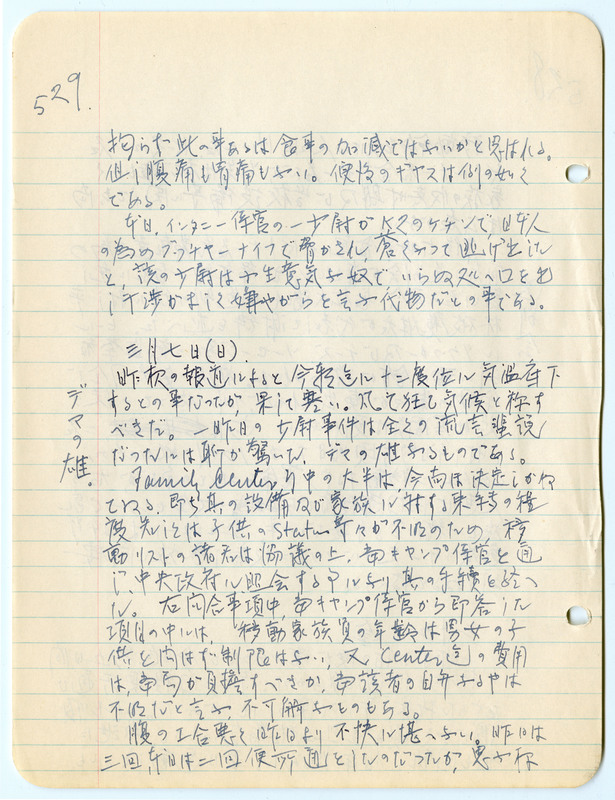 529.
拘らず此の事あるは食事の加減ではないかと思はれる。
但し腹痛も胃痛もない。便後のギヤスは例の如く
である。
本日、インタニー係官の一少尉がK2のケチンで日本人
の為めブッチャーナイフで脅かされ、蒼くなって逃げ出した
と、該の少尉は小生意気な奴で、いらぬ処へ口を出
し干渉がましく嫌やがらせを言ふ代物だとの事である。
三月七日(日).
昨夜の報道によると今朝迄に十二度位に気温底下
するとの事だったが、果して寒い。凡て狂ひ気候と称す
べきだ。一昨日の少尉事件は全くの流言蜚説
だったには聊か驚いた、デマの雄なるものである。
デマの雄。
Family Center行中の大半は今尚ほ決定しかね
てゐる、即ち其の設備及び家族に対する来時の
先には子供のStatus等々が不明のため、移
動リストの諸君は協議の上、当キャンプ係官を通
じ、中央政府に照会する事になり其の手続を経
た。右問合事項中、当キャンプ係官から即答した
項目の中には、移動家族員の年齢は男女の子
供を問はず制限はない、又Center迄の費用
は、当局が負擔すべきか、当該者の自弁なるやは
不明だと言ふ不可解なものもある。
腹の工合悪く昨日より不快に堪へない。昨日は
三回、本日は二回便所通ひをしたのだったが、思ふ様